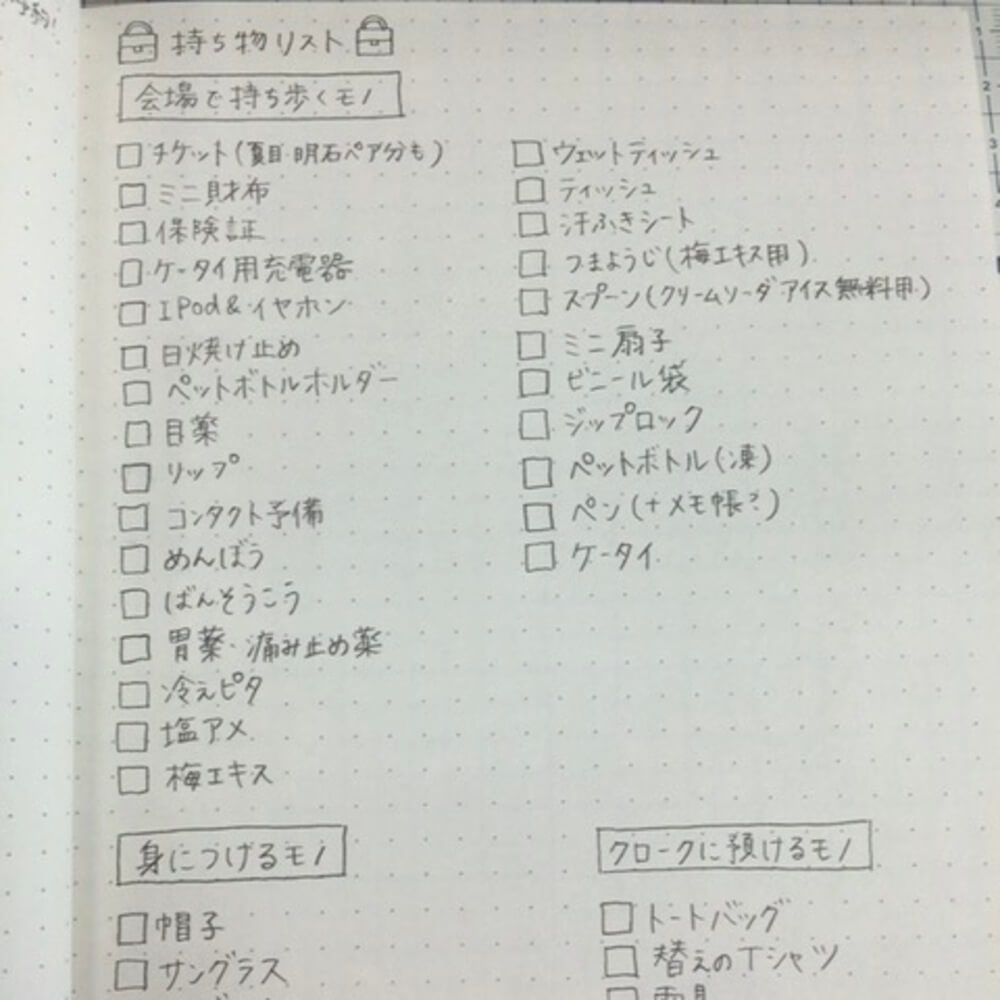 持ち物リスト
会場で持ち歩くモノ
チケット(夏目・明石ペア分も)
ミニ財布
保険証
ケータイ用充電器
IPod&イヤホン
日焼け止め
ペットボトルホルダー
目薬
リップ
コンタクト予備
めんぼう
ばんそうこう
胃薬・痛み止め薬
冷えピタ
塩アメ
梅エキス
ウェットティッシュ
ティッシュ
汗ふきシート
つまようじ(梅エキス用)
スプーン(クリームソーダアイス無料用)
ミニ扇子
ビニール袋
ジップロック
ペットボトル(凍)
ペン(+メモ帳?)
ケータイ
身につけるモノ
帽子
サングラス
クロークに預けるモノ
トートバッグ
替えのTシャツ
雨具